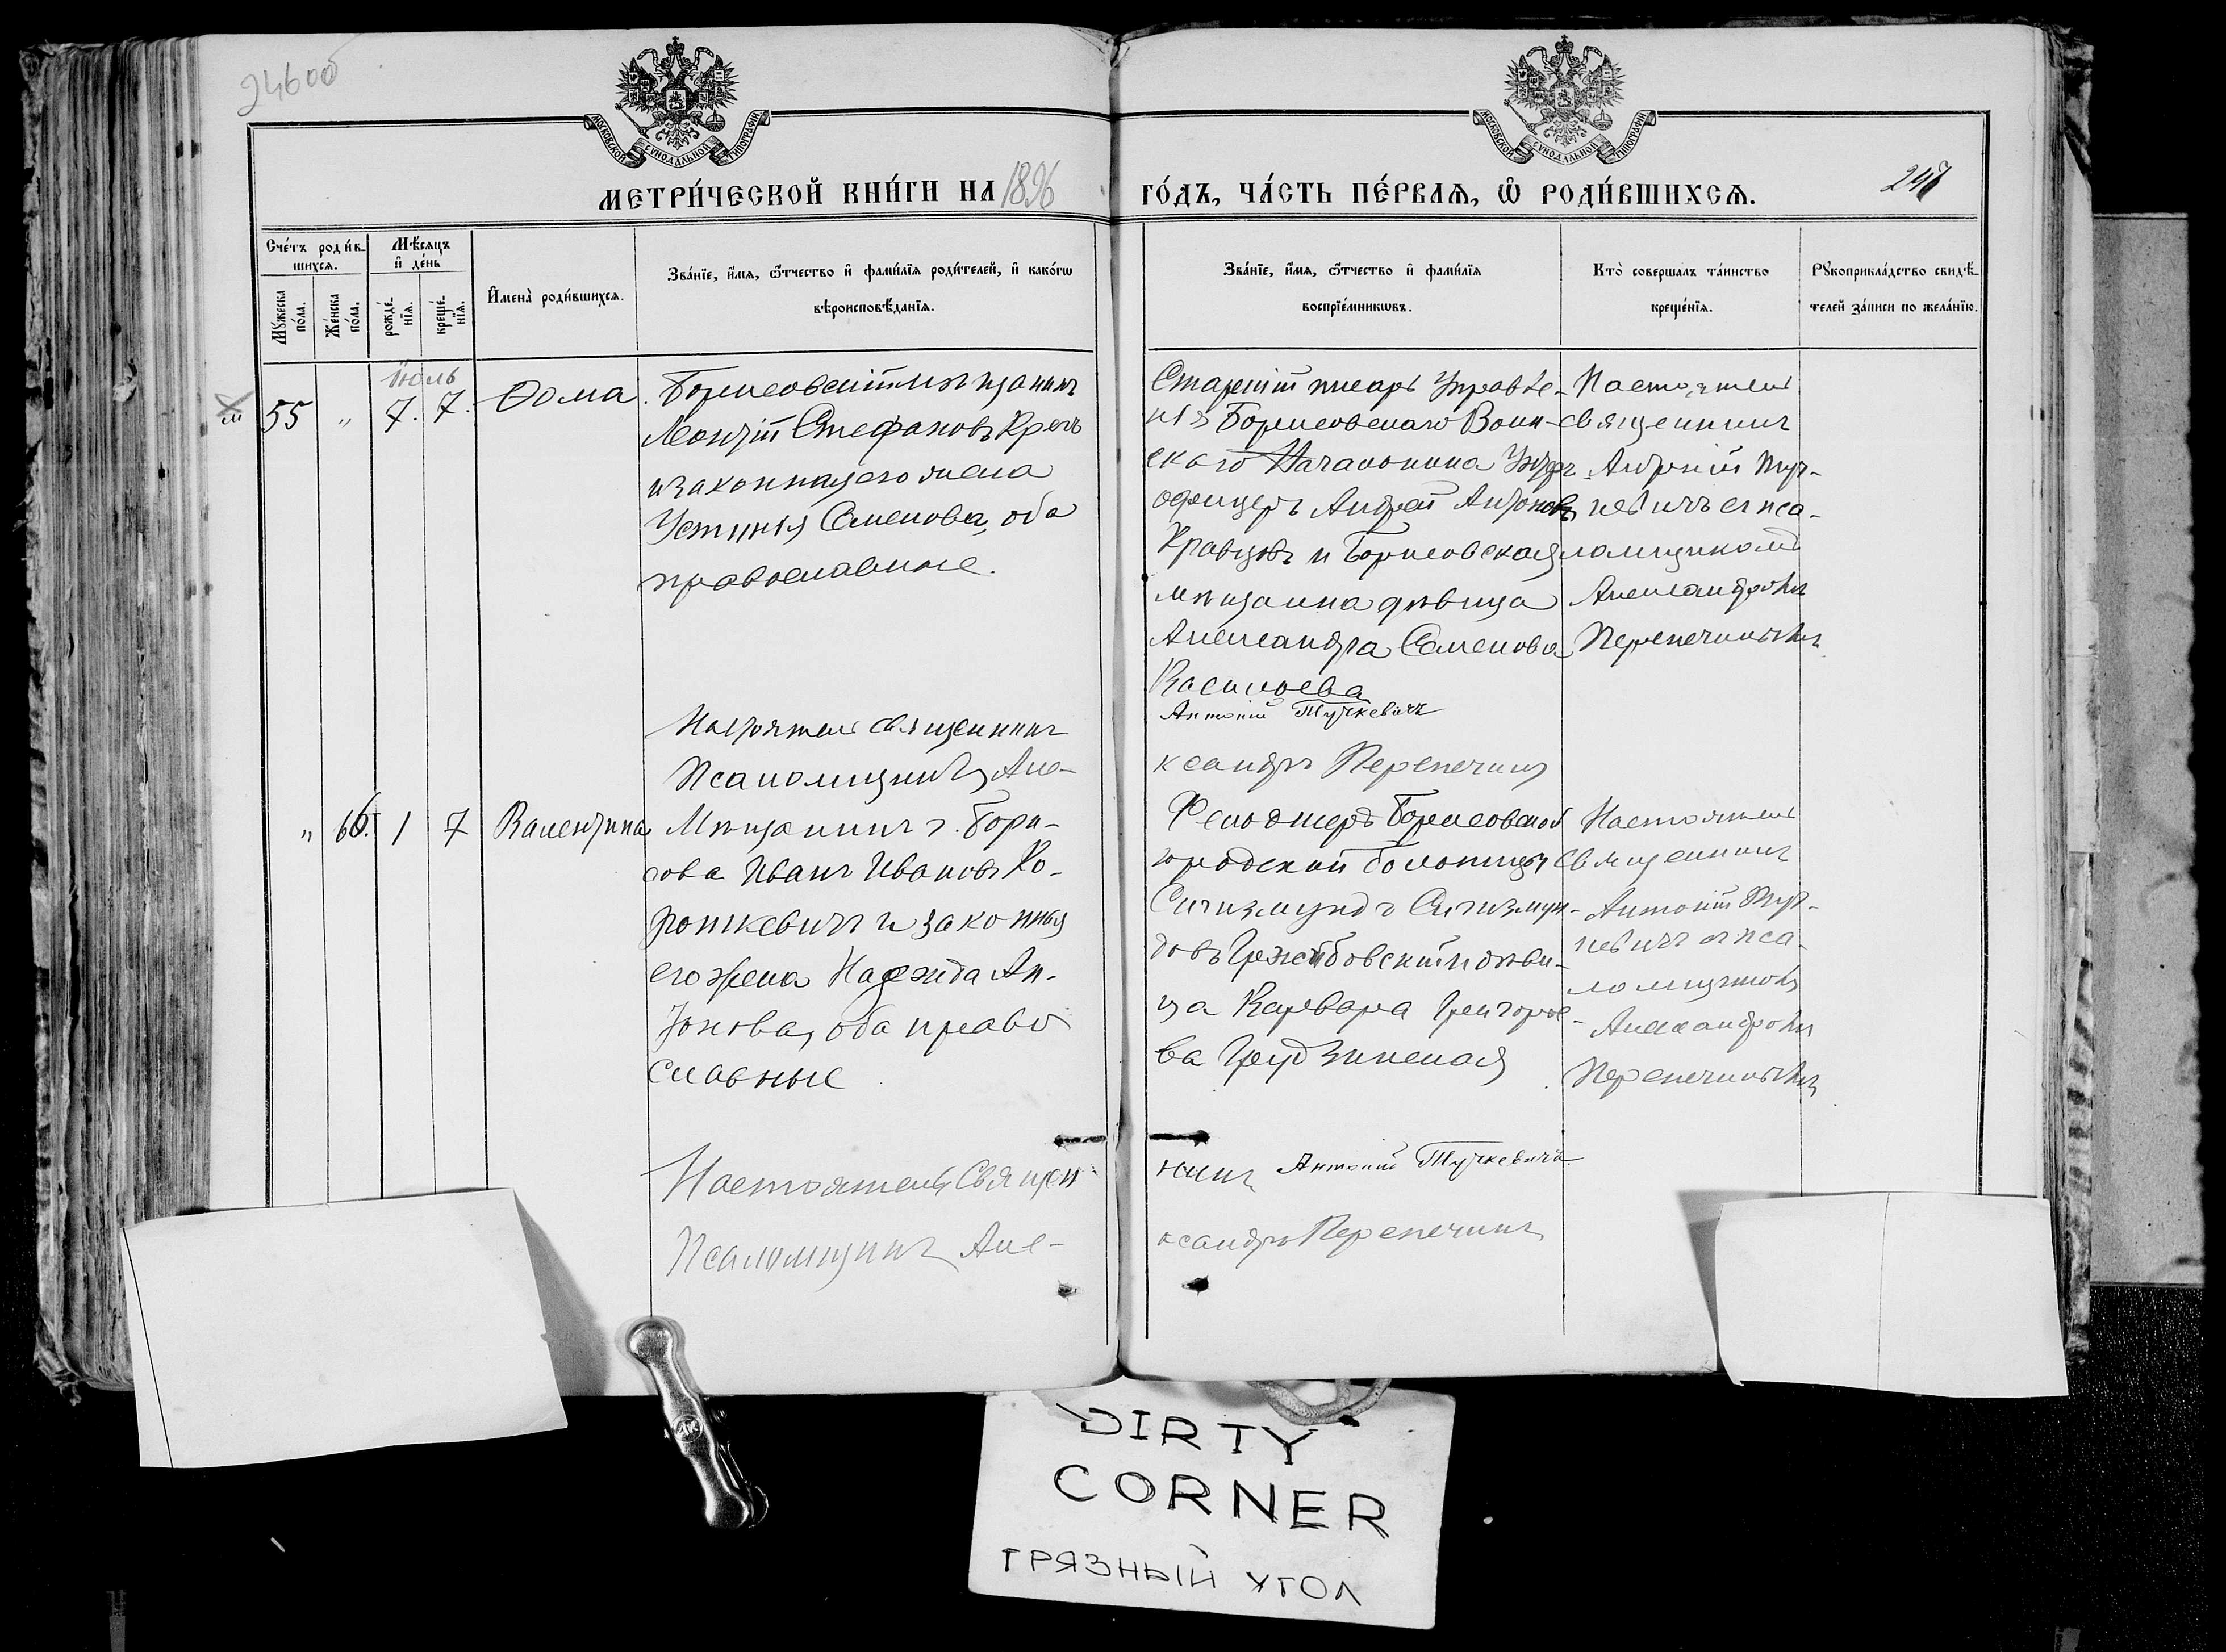 24600
МОСКОВСКОЙ СУНОДАЛЬНОЙ ТИПОГРАФИИ
МОСКОВСКОЙ СУНОДАЛЬНОЙ ТИПОГРАФИИ
МЕТРИ́ЧЕСКОЙ КНИ́ГИ НА 1896 ГО́ДЪ, ЧА́СТЬ ПЕ́РВАѦ, Ѡ҆ РОДИ́ВШИХСѦ.
247
Сче́тъ роди́в-
шихсѧ.
Мꙋжеска по́ла.
Же́нска по́ла.
Мѣ́сѧцъ
и҆ де́нь
рожде́-
нїѧ.
креще́-
нїѧ.
И҆мена̀ роди́вшихсѧ.
Зва́нїе, и҆́мѧ, ѻ҆́тчество и҆ фами́лїѧ роди́телей, и҆ како́гѡ
вѣроисповѣ́данїѧ.
Зва́нїе, и҆́мѧ, ѻ҆́тчество и҆ фами́лїѧ
воспрїе́мникѡвъ.
Кто̀ соверша́лъ та́инство
креще́нїѧ.
Рꙋкоприкла́дство свидѣ́-
телей за́писи по жела́нїю.
Іюль
55 " 7. 7.
Ѳома.
Борисовскій мѣщанинъ
Леонтій Стефановъ Кречъ
и законная его жена
Устинія Семенова, оба
православные.
Старшій писарь Управле-
нія Борисовскаго Воин-
скаго Начальника Унтеръ
офицеръ Андрей Антоновъ
Кравцовъ и Борисовская
мѣщанка дѣвица
Александра Семенова
Васильева
Настоятель
священникъ
Антоній Туч-
кевичъ съ пса-
ломщикомъ
Александромъ
Перепечинымъ
Настоятель священникъ Антоній Тучкевичъ
Псаломщикъ Але-
ксандръ Перепечинъ
" 66. 1 7
Валентина
Мѣщанинъ г. Бори-
сова Иванъ Ивановъ Ко-
роткевичъ и законная
его жена Надежда Ан-
тонова, оба право
славные
Фельдшеръ Борисовской
городской больницы
Сигизмундъ Сигизмун-
довъ Гржибовскій и дѣви-
ца Варвара Григорье-
ва Грудзинская
Настоятель
Священникъ
Антоній Туч-
кевичъ съ пса-
ломщикомъ
Александромъ
Перепечинымъ
Настоятель Священ-
никъ Антоній Тучкевичъ
Псаломщикъ Але-
ксандръ Перепечинъ
DIRTY
CORNER
ГРЯЗНЫЙ УГОЛ